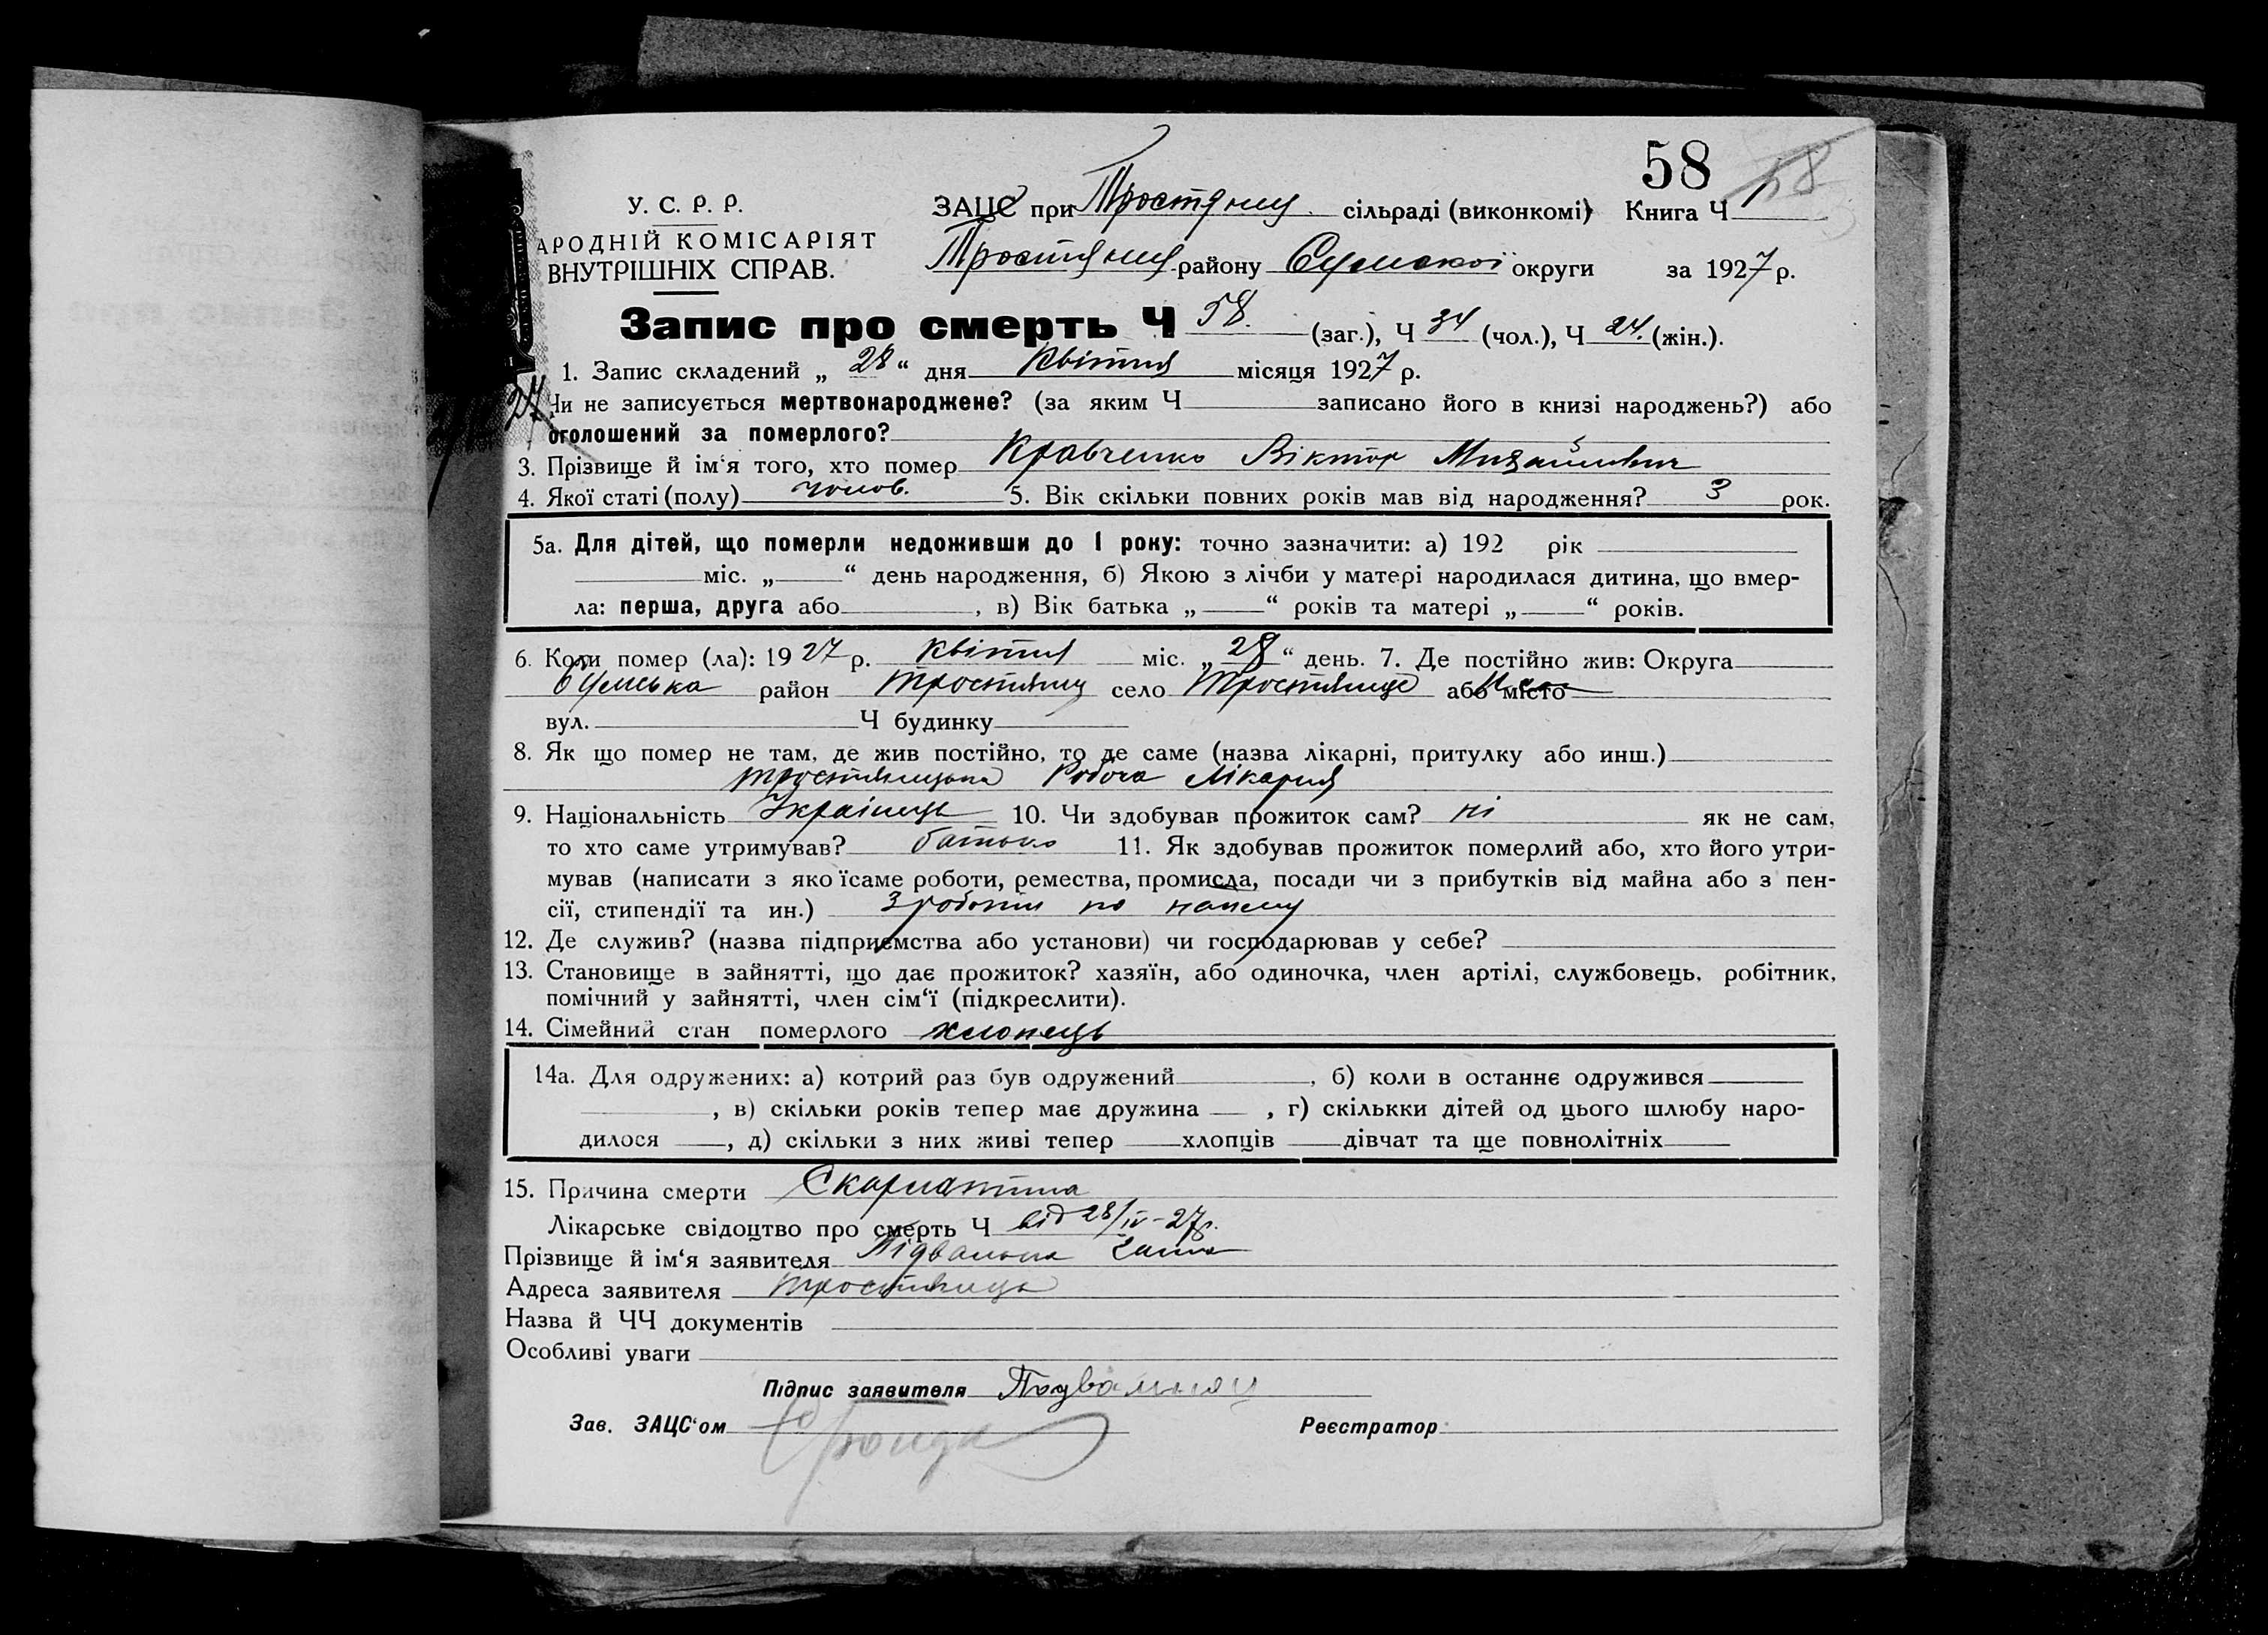 58 58
У. С. Р. Р.
АРОДНІЙ КОМІСАРІЯТ
ВНУТРІШНІХ СПРАВ.
ЗАЦС при Тростянец. сільраді (виконкомі) Книга Ч 1
Тростянец. району Сумської округи за 1927 р.
Запис про смерть Ч 58. (заг.), Ч 34 (чол.), Ч 24. (жін.).
1. Запис складений „ 28 “ дня Квітня місяця 1927 р.
Чи не записується мертвонароджене? (за яким Ч записано його в книзі народжень?) або
оголошений за померлого?
3. Прізвище й ім‘я того, хто помер Кравченко Віктор Михайлович
4. Якої статі (полу) чолов. 5. Вік скільки повних років мав від народження? 3 рок.
5а. Для дітей, що померли недоживши до 1 року: точно зазначити: а) 192 рік
міс. „ “ день народження, б) Якою з лічби у матері народилася дитина, що вмер-
ла: перша, друга або , в) Вік батька „ “ років та матері „ “ років.
6. Коли помер (ла): 1927 р. квітня міс. „ 28 “ день. 7. Де постійно жив: Округа
Сумська район Тростянец село Тростянець або місто
вул. Ч будинку
8. Як що помер не там, де жив постійно, то де саме (назва лікарні, притулку або инш.)
Тростянецька Робоча Лікарня
9. Національність Українець 10. Чи здобував прожиток сам? ні як не сам,
то хто саме утримував? батько 11. Як здобував прожиток померлий або, хто його утри-
мував (написати з якоїсаме роботи, ремества, промисла, посади чи з прибутків від майна або з пен-
сії, стипендії та ин.) З роботи по найму
12. Де служив? (назва підприємства або установи) чи господарював у себе?
13. Становище в зайнятті, що дає прожиток? хазяїн, або одиночка, член артілі, службовець, робітник,
помічний у зайнятті, член сім‘ї (підкреслити).
14. Сімейний стан померлого хлопець
14а. Для одружених: а) котрий раз був одружений , б) коли в останнє одружився
, в) скільки років тепер має дружина , г) скількки дітей од цього шлюбу наро-
дилося , д) скільки з них живі тепер хлопців дівчат та ще повнолітніх
15. Причина смерти Скарлатина
Лікарське свідоцтво про смерть Ч від 28/IV-27р.
Прізвище й ім‘я заявителя Підвальна
Адреса заявителя Тростянець
Назва й ЧЧ документів
Особливі уваги
Підпис заявителя
Зав. ЗАЦС‘ом
Реєстратор